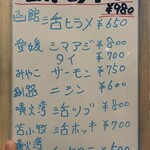 ¥980
函館 活ヒラメ ¥650
愛媛 シマアジ ¥800
タイ ¥700
みやこ サーモン ¥750
釧路 ニシン ¥600
噴火湾 活ツブ ¥800
苫小牧 活ホッキ ¥700
噴火湾